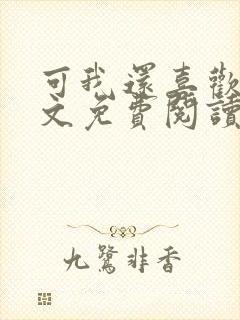 可我還喜歡
文免費閱讀
九鷺非香